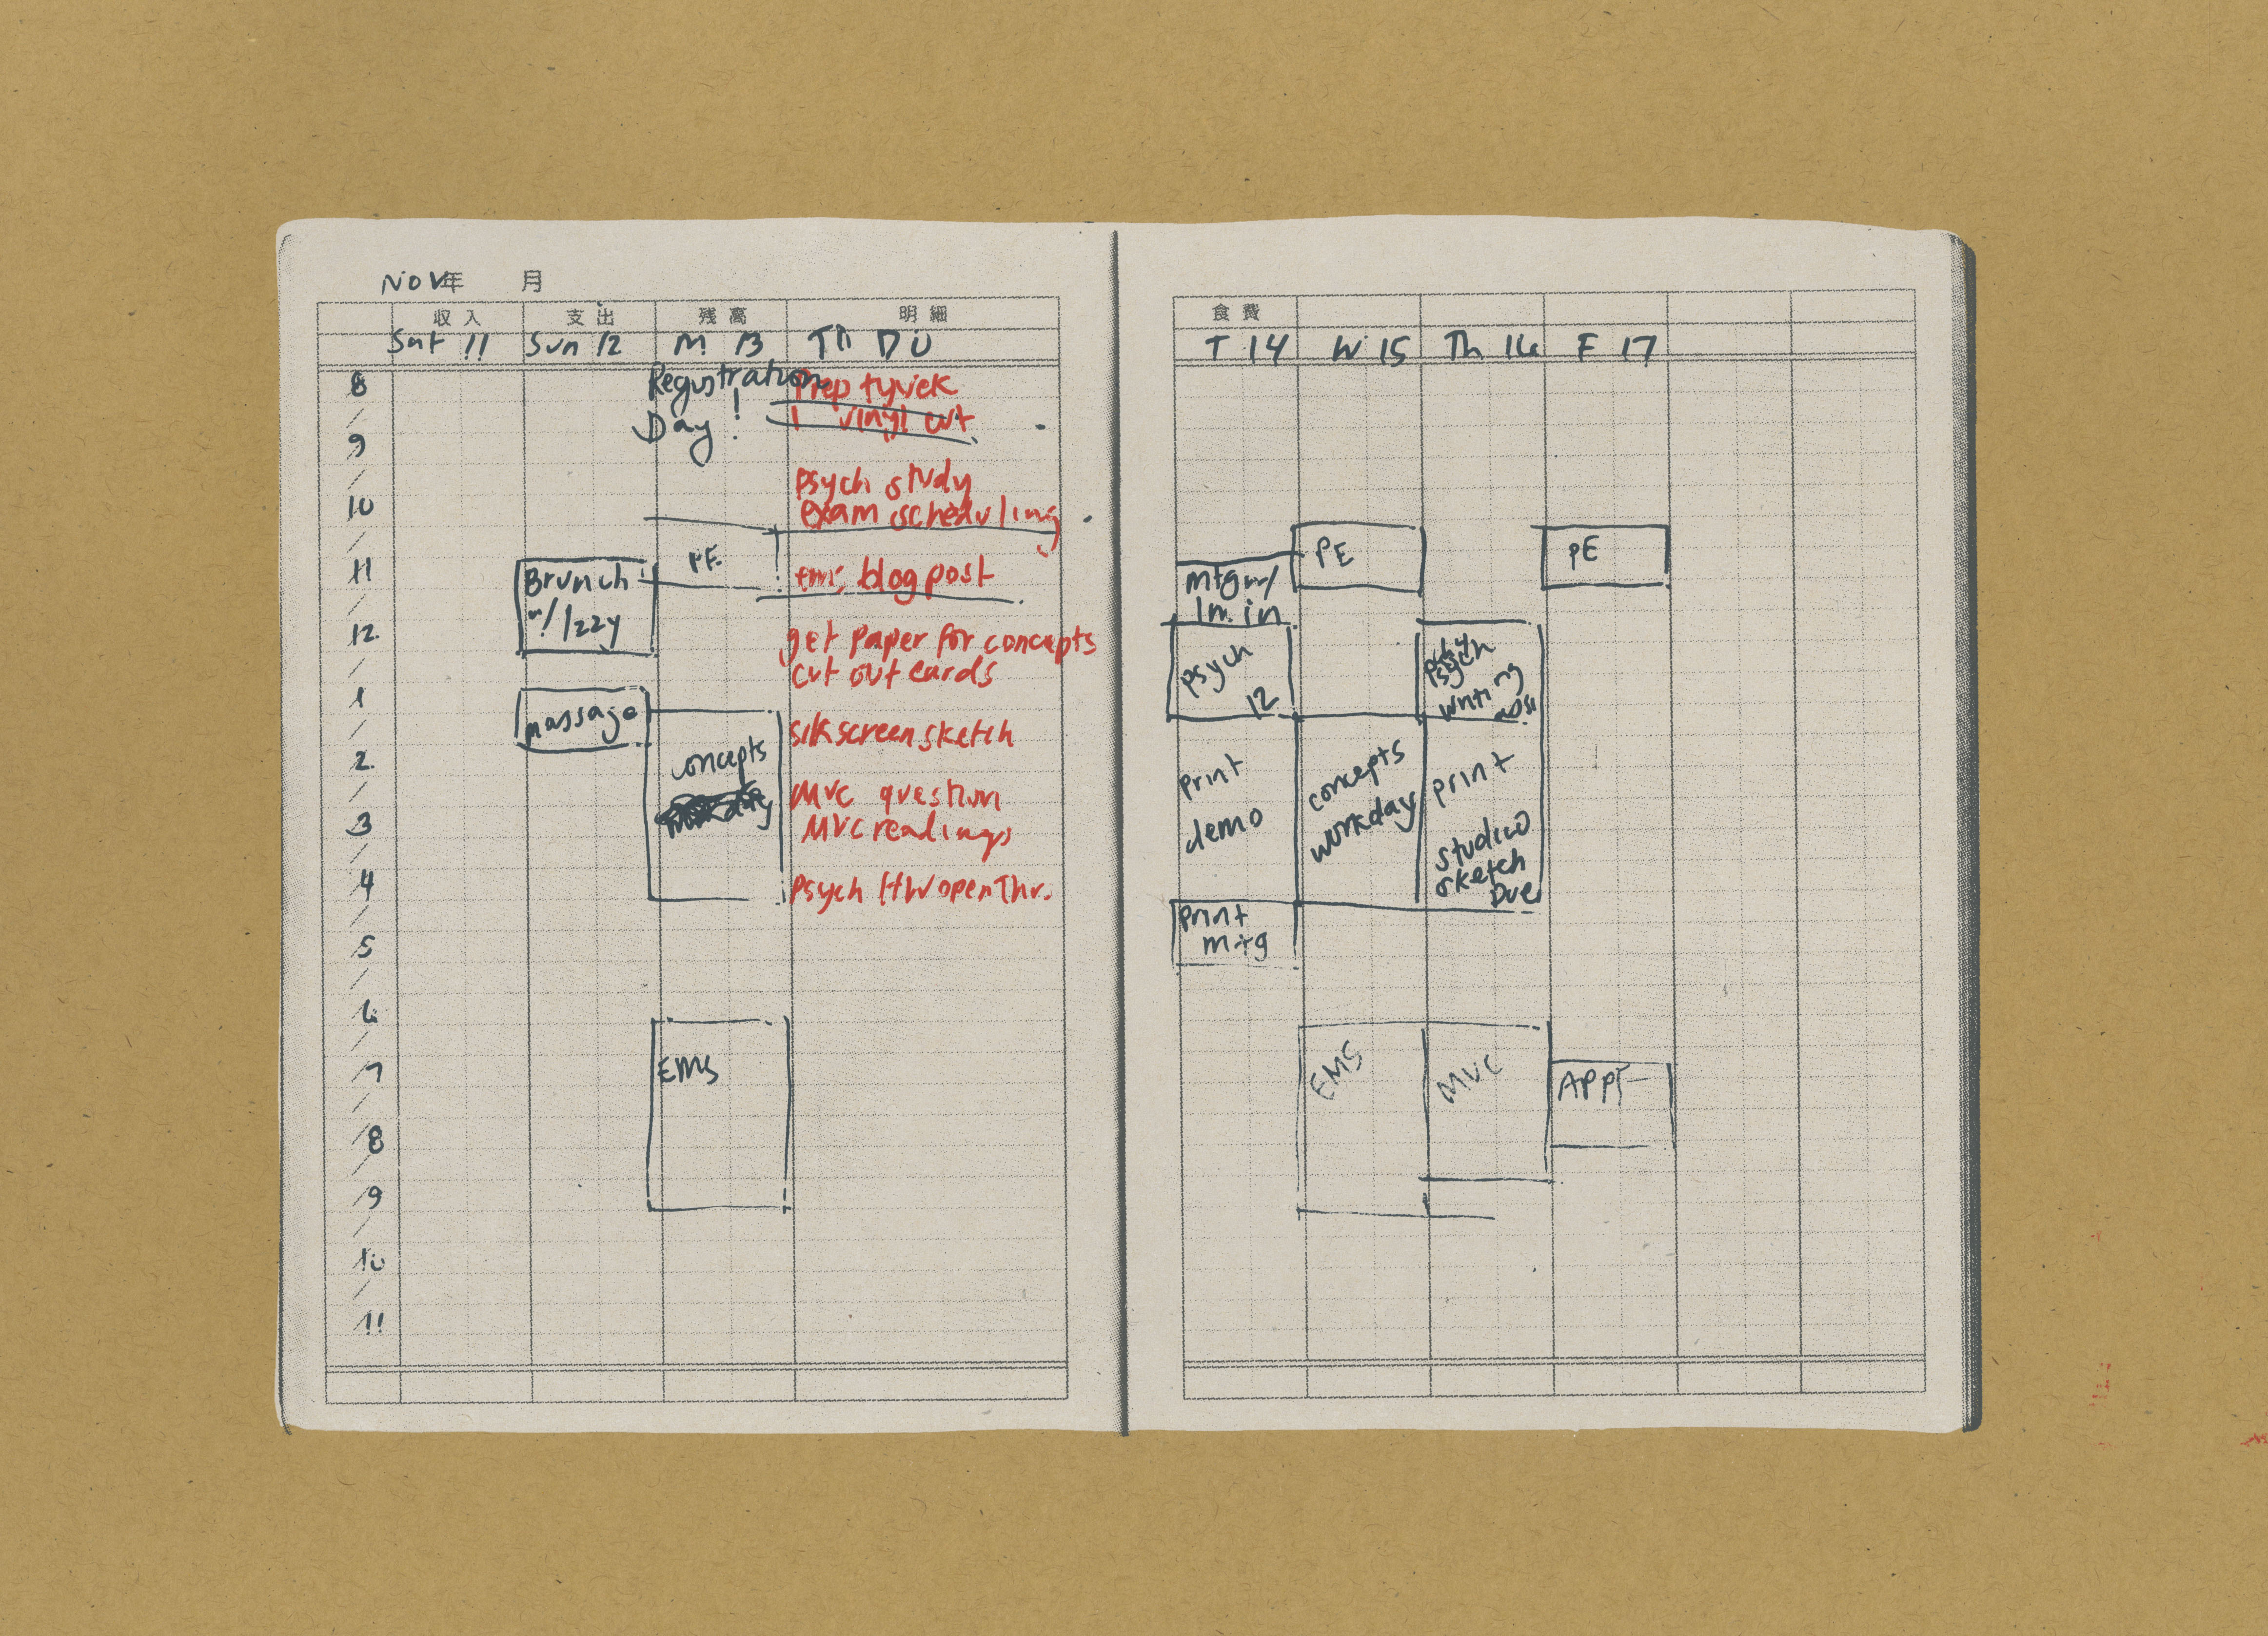 NOV年 月
収入 支出 残高 明細
Sat 11 Sun 12 M 13 TO DO
8
9
10
11
12
1
2
3
4
5
6
7
8
9
10
11
Brunch
w/ Izzy
massage
Registration
Day!
PE
concepts
EMS
Prep tyvek
1 vinyl cut
psych study
exam scheduling
EMS blog post
get paper for concepts
cut out cards
silkscreen sketch
MVC question
MVC readings
Psych HW open Thr.
食費
T 14 W 15 Th 16 F 17
mtg w/
1 min
Psych
12
print
demo
print
mtg
PE
concepts
workday
EMS
psych
writing
print
studio
sketch
Due
MVC
PE
APPT